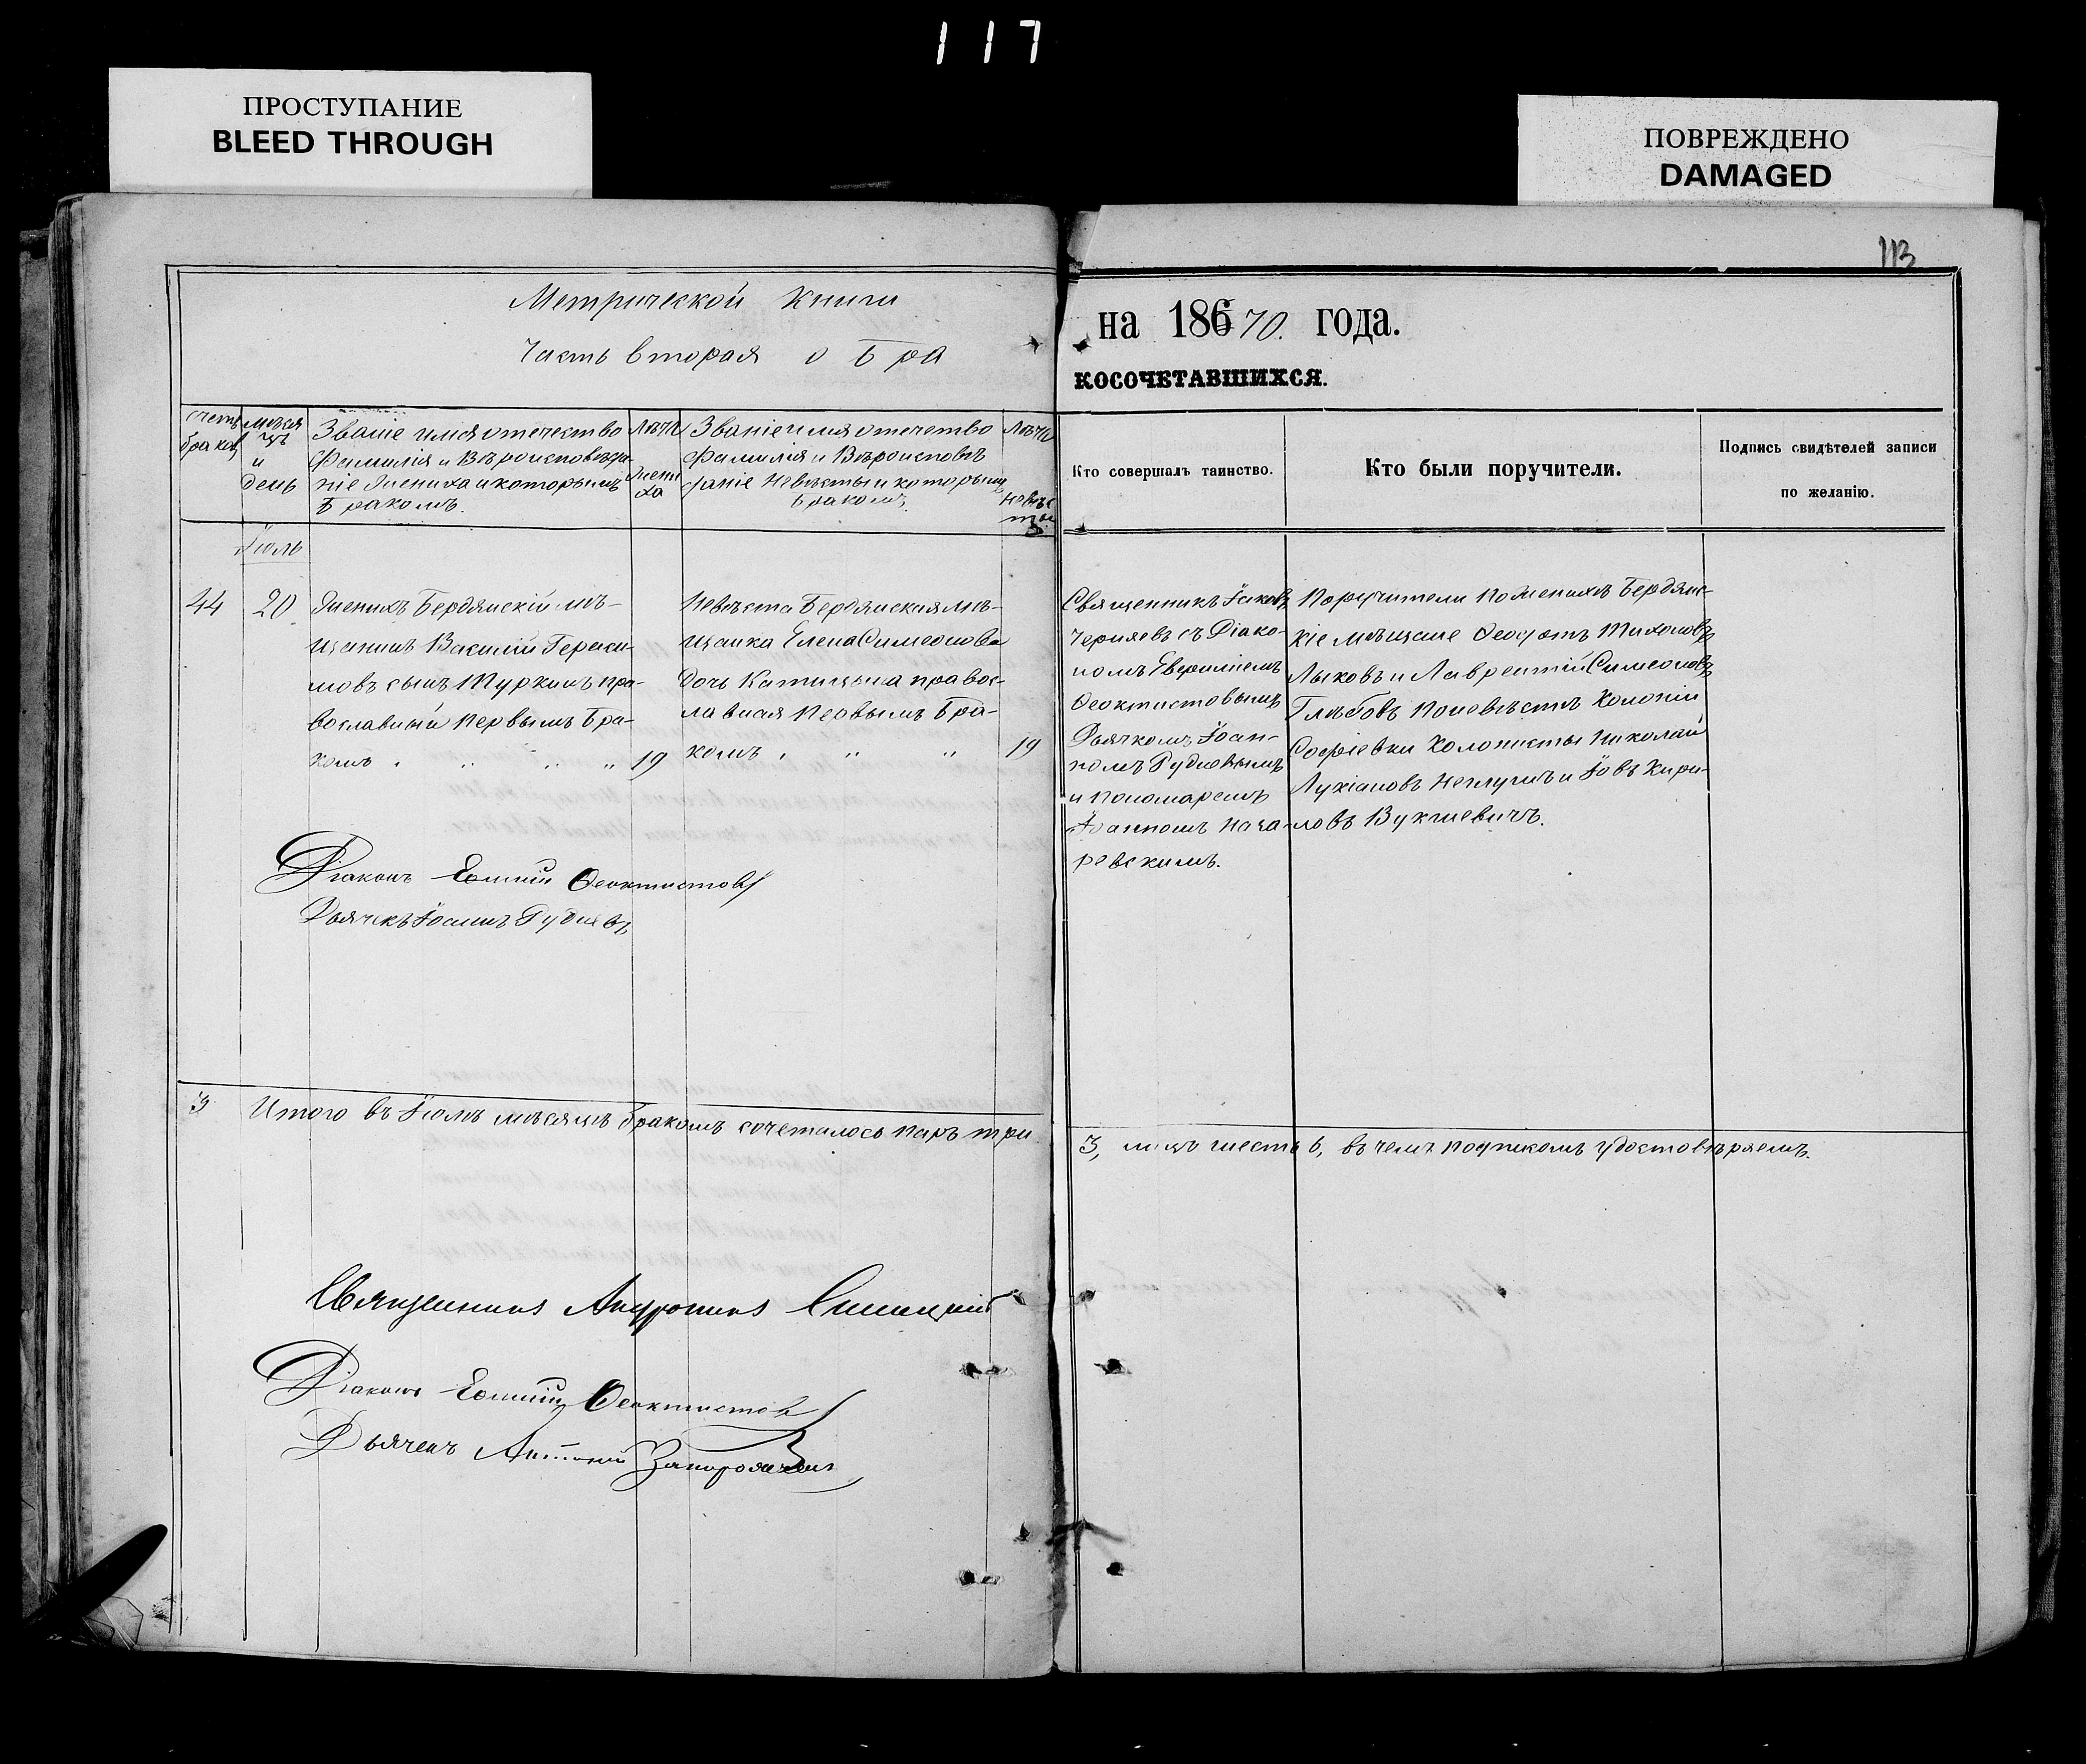 117
ПРОСТУПАНИЕ
BLEED THROUGH
ПОВРЕЖДЕНО
DAMAGED
113
Метрической книги
Часть вторая о Бра
на 186 70. года.
КОСОЧЕТАВШИХСЯ.
счетъ браков
месяцъ и день
Званіе имя отечество
фамилія и Вѣроисповѣда-
ніе жениха и которымъ
Бракомъ.
Лѣта жениха
Званіе имя отечество
фамилія и Вѣроисповѣ
даніе невѣсты и которымъ
бракомъ.
Лѣта невѣсты
Кто совершалъ таинство.
Кто были поручители.
Подпись свидѣтелей записи
по желанію.
Іюль
44
20.
Женихъ Бердянскій мѣ-
щанинъ Василій Гераси-
мовъ сынъ Туркинъ пра-
вославный первымъ Бра-
комъ
19
Невѣста Бердянская мѣ-
щанка Елена Симеонова
дочь православная первымъ Бра-
комъ
19
Священникъ Іаковъ
Черняевъ съ Діако-
номъ
Феоктистовымъ
Дьячкомъ Іоан-
номъ Рудневымъ
и пономаремъ
Іоанномъ Наза-
ревскимъ.
Поручители по женихѣ Бердянс-
кіе мѣщане Феодотъ Тихоновъ
Лыковъ и Лаврентій Симеоновъ
Глѣбовъ по невѣстѣ колоніи
Софіевки колонисты Николай
Лукіановъ и Іовъ Кири-
ловъ Вукчевичъ.
Діаконъ Феоктистовъ
Дьячекъ Іоаннъ Рудневъ
3
Итого въ Іюлѣ месяцѣ бракомъ сочеталось паръ три
3, лицъ шесть 6, въ чемъ подпискомъ удостовѣряемъ.
Священникъ Андроникъ Синицкій
Діаконъ Феоктистовъ
Дьячекъ Антоній